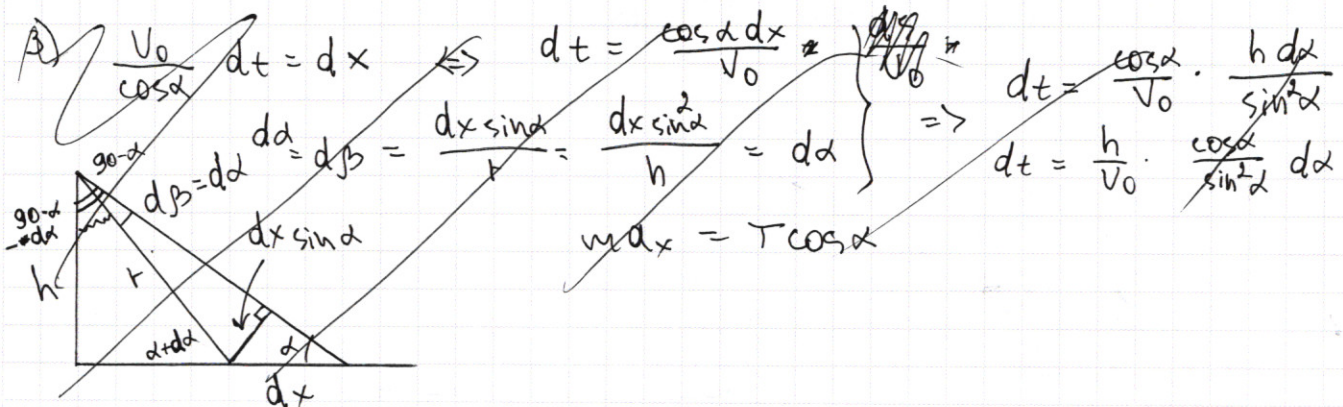 β) V₀/cosα dt = dx <=> dt = cosα dx / V₀
dα = dβ = dx sinα / r = dx sin²α / h = dα } =>
dt = cosα/V₀ · h dα / sin²α
dt = h/V₀ · cosα/sin²α dα
max = T cosα
90-α
dβ=dα
90-α
-dα
dx sinα
h
r
α+dα
α
dx